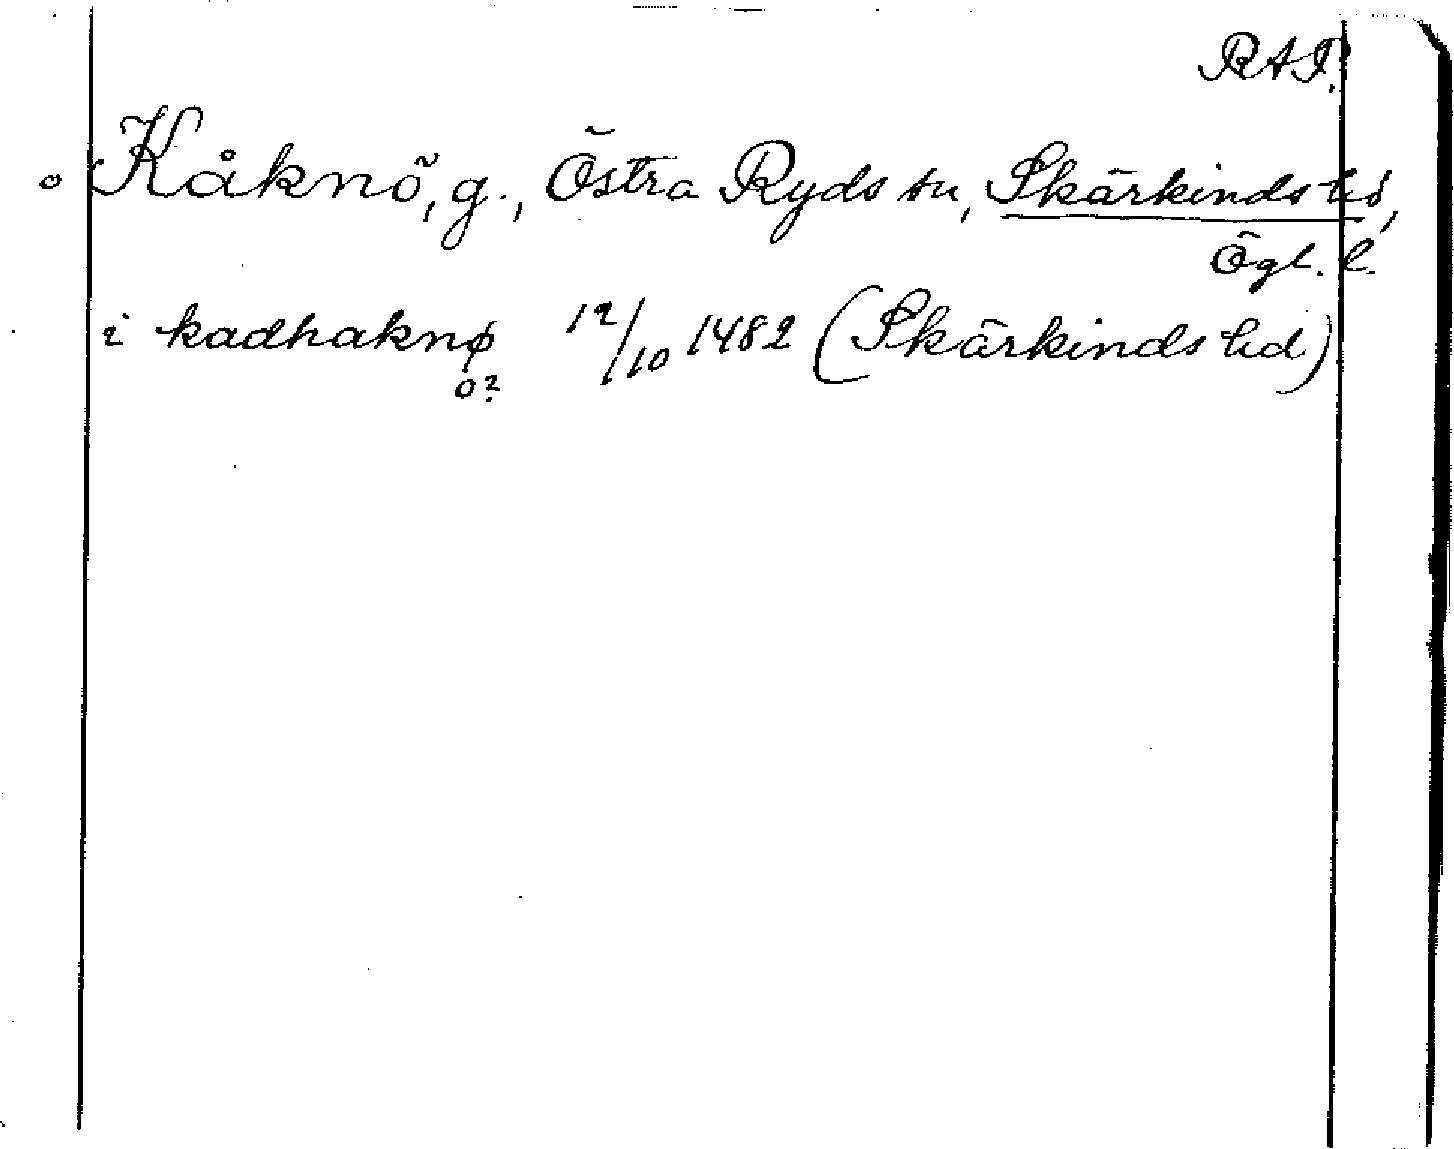 RAP.
° Kåknö, g., Östra Ryds sn, Skärkinds hd,
Ögl. l.
i kadhaknø 12/10 1482 (Skärkinds hd)
o?